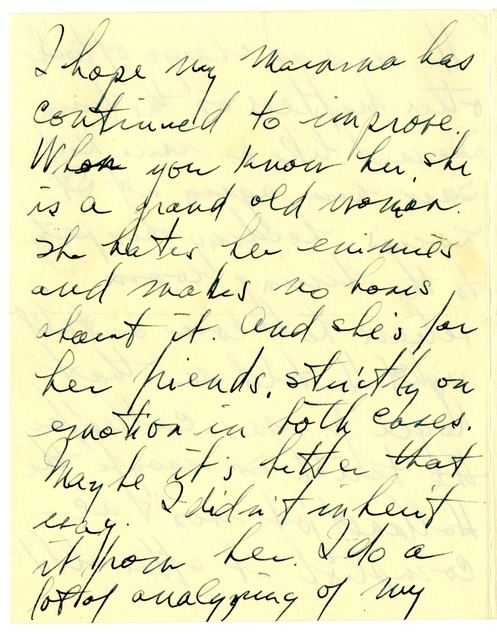 I hope my Mamma has
continued to improve.
When you know her, she
is a grand old woman.
She hates her enimies
and makes no bones
about it. And she's for
her friends, strictly on
emotion in both cases.
Maybe it's better that
way. I didn't inherit
it from her. I do a
lot of analyzing of my